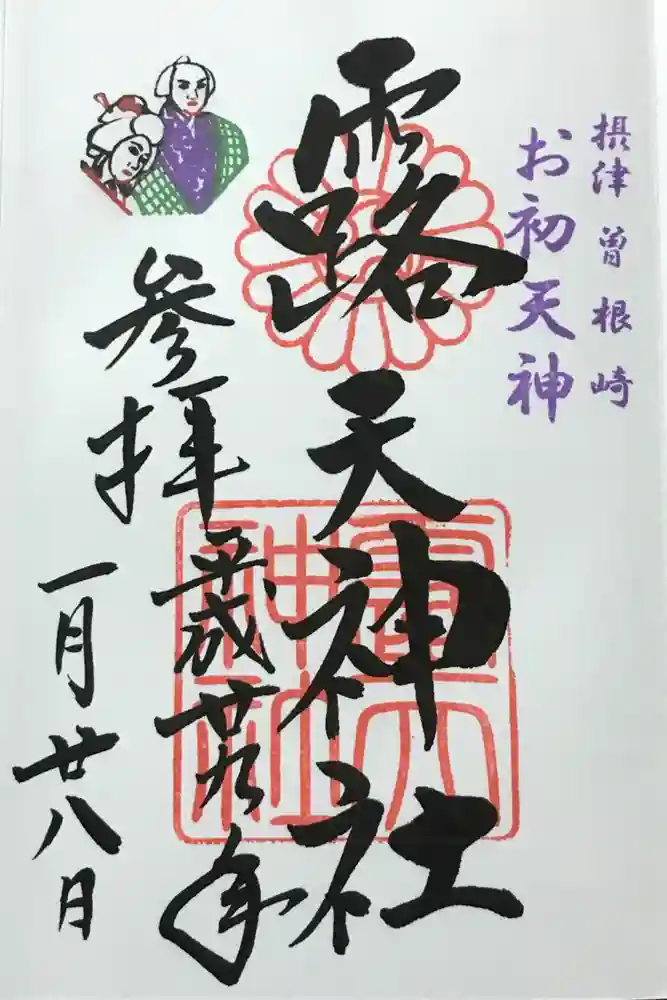 摂津 曽根崎
お初天神
露天神社
参拝 平成廿九年
一月廿八日
露天神社